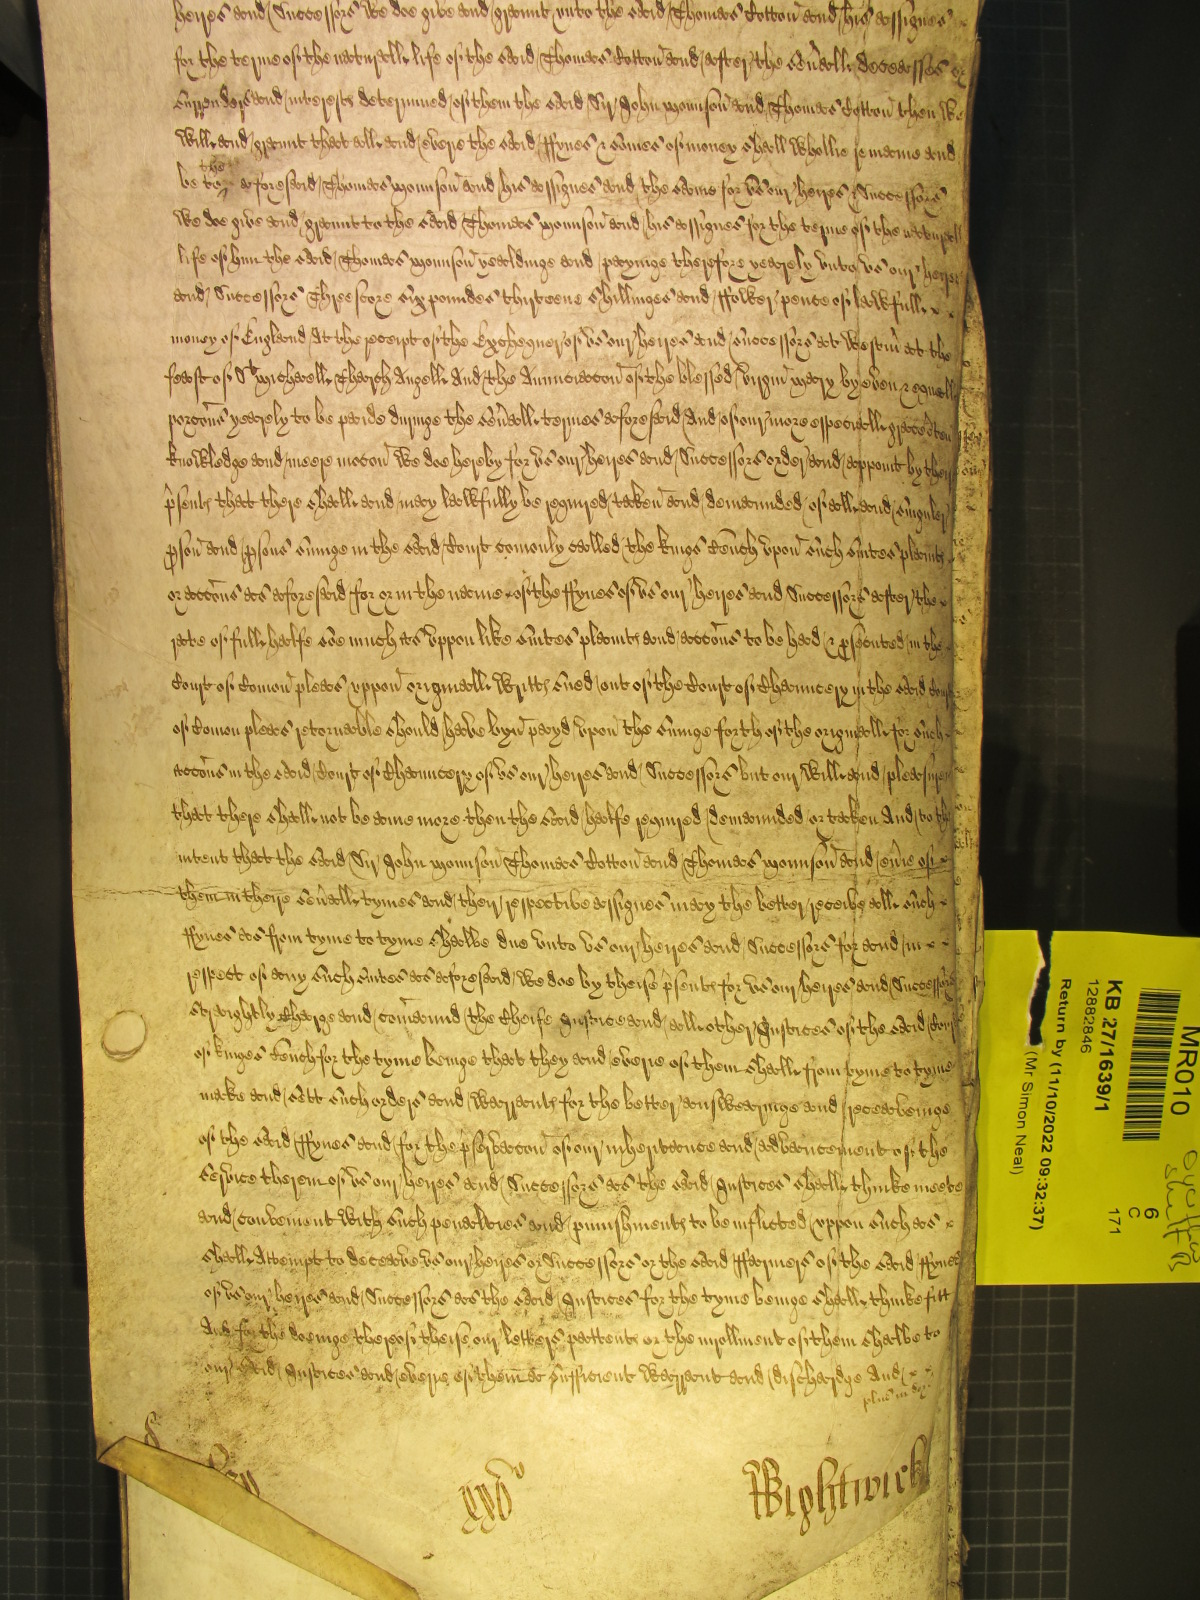 heires and Successors we doe give and graunt unto the said Thomas Cotton and his assignes
for the terme of the naturall life of the said Thomas Cotton and after the sev'all deceasses or
surrenders and interests determined of them the said Sir John Mounson and Thomas Cotton then We
Will and graunt that all and every the said ffynes & Somes of money shall Wholie remaine and
be to the aforesaid Thomas Mounson and his assignes and the same for us our heires & Successors
We doe give and graunt to the said Thomas Mounson and his assignes for the terme of the naturall
life of him the said Thomas Mounson yealdinge and payinge therefore yearely unto us our heires
and Successors Threescore six poundes thirteene shillinges and ffower pence of lawfull
money of England At the receipt of the Exchequer of us our heires and Successors at Westm' at the
feast of St Michaell Tharch Angell And the Annunciacon of the blessed Virgin Mary by even & equall
porcons yearely to be paide duringe the sev'all termes aforesaid And of our more especiall grace
knowledge and meere mocon We doe hereby for us our heires and Successors order and appoint by theis
p'sents that there shall and may lawfully be required taken and demaunded of all and singuler
p'son and p'sons suinge in the said Court comonly called the Kings Bench upon such suites plaints
or accons as aforesaid for or in the name of the ffynes of us our heires and Successors after the
rate of full halfe soe much as uppon like suites plaints and accons to be had & p'secuted in the
Court of Comon pleas uppon originall Writts sued out of the Court of Chauncery in the said Court
of Comon pleas retornable should have byn payd upon the suinge forth of the originall for such
accons in the said Court of Chauncery of us our heires and Successors but our Will and pleasure
that there shall not be anie more then the said halfe required demaunded or taken And to th
intent that the said Sir John Mounson Thomas Cotton and Thomas Mounson and ev'ie of
them in theire sev'all tymes and their respective assignes may the better receive all such
ffynes as from tyme to tyme shalbe due unto us our heires and Successors for and in
respect of any such suites as aforesaid We doe by theise p'sents for us our heires and Successors
Straightly Charge and comaund the Cheife Justice and all other Justices of the said Court
of Kinges Bench for the tyme beinge that they and everie of them shall from tyme to tyme
make and sett such orders and Warrants for the better answearinge and receavinge
of the said ffynes and for the p'servacon of our inheritance and advancement of the
Service therein of us our heires and Successors as the said Justices shall thinke meete
and convenient With such penalties and punishments to be inflicted uppon such as
shall Attempt to deceave us our heires or Successors or the said ffarmers of the said ffynes
of us our heires and Successors as the said Justices for the tyme beinge shall thinke fitt
And for the doeinge thereof theise our letters pattents or the inrollment of them shalbe to
our said Justices and everie of them a sufficient Warrant and discharge And
Wightwick
MR010
KB 27/1639/1
12882846
Return by (11/10/2022 09:32:37)
(Mr Simon Neal)
6
C
171